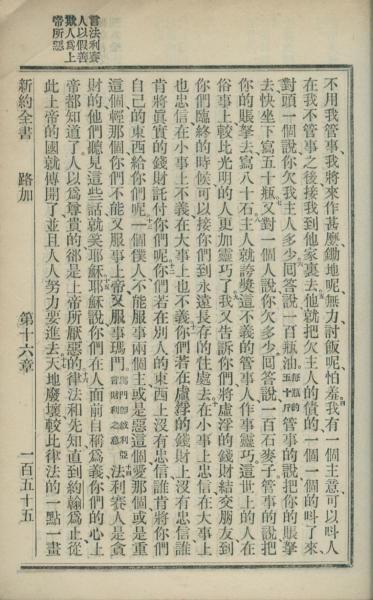 言法利賽
人以假善
欺人爲上
帝所惡
不用我管事我將來作甚麽鋤地呢無力討飯呢怕羞我有一個主意可以呌人
在我不管事之後接我到他家裏去他就把欠主人的債的一個一個的呌了來
對頭一個說你欠我主人多少囘答說一百瓶油每瓶約五十斤管事的說把你的賬拏
去快坐下寫五十瓶又對一個人說你欠多少囘答說一百石麥子管事的說把
你的賬拏去寫八十石主人就誇獎這不義的管事人作事靈巧這世上的人在
俗事上較比光明的人更加靈巧了我又告訴你們將虛浮的錢財結交朋友到
你們臨終的時候可以接你們到永遠長存的住處去在小事上忠信在大事上
也忠信在小事上不義在大事上也不義你們若在虛浮的錢財上沒有忠信誰
肯將眞實的錢財託付你們呢你們若在別人的東西上沒有忠信誰肯將你們
自己的東西給你們呢一個僕人不能服事兩個主或是惡這個愛那個或是重
這個輕那個你們不能又服事上帝又服事瑪門瑪門卽敘利亞言財利之意法利賽人是貪
財的他們聽見這些話就笑耶穌耶穌說你們在人面前自稱爲義你們的心上
帝都知道了人以爲尊貴的卻是上帝所厭惡的律法和先知直到約翰爲止從
此上帝的國就傳開了並且人人努力要進去天地廢壞較比律法的一點一畫
新約全書 路加 第十六章 一百五十五